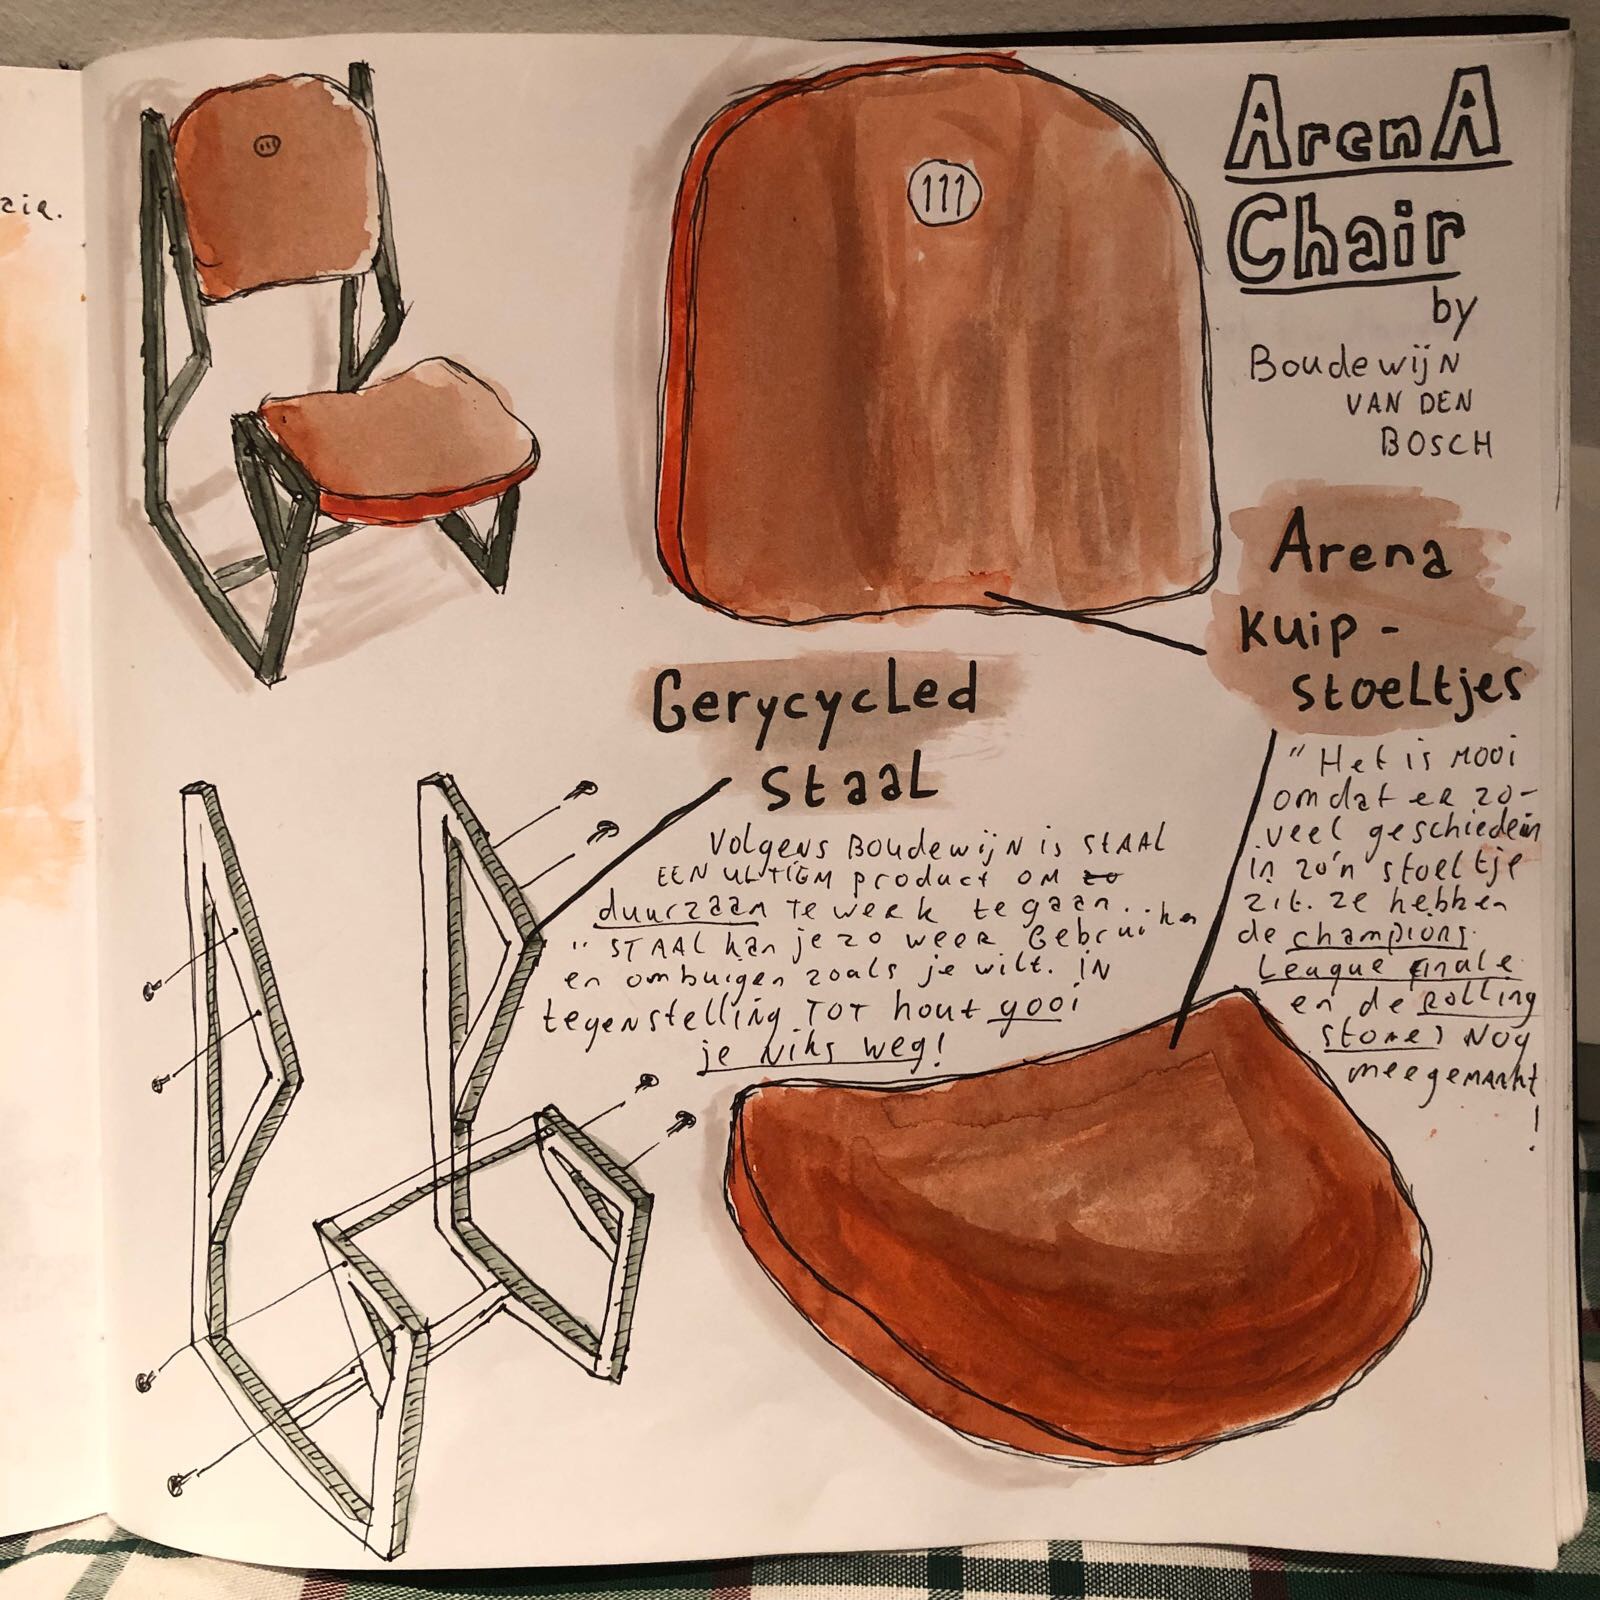 zie.
ArenA
Chair
by
Boudewijn
VAN DEN
BOSCH
111
111
Arena
kuip-
stoeltjes
"Het is mooi
omdat er zo-
veel geschieden
in zo'n stoeltje
zit. ze hebben
de champions
League finale
en de rolling
stones nog
meegemaakt
!
Gerycycled
staal
Volgens Boudewijn is STAAL
EEN ULTIEM product om zo
duurzaam te werk te gaan..
"STAAL kan je zo weer gebruiken
en ombuigen zoals je wilt. IN
tegenstelling TOT hout gooi
je niks weg!